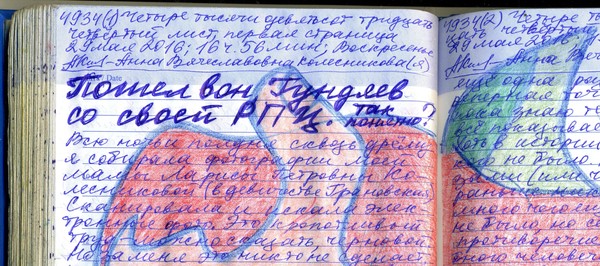 4934(1) Четыре тысячи девятьсот тридцать
четвёртый лист, первая страница
29 мая 2016; 16 ч. 56 мин; Воскресенье
АКол - Анна Вячеславовна Колесникова(я)
Date
Пошел вон Гундяев
со своей РПЦ. так понятно?
Всю ночь и полдня сквозь дрёму
я собирала фотографии моей
мамы Ларисы Петровны Ко-
лесниковой (в девичестве Грановская)
Сканировала и искала элек-
тронные фото. Это кропотливый
труд можно сказать, черновой.
Но за меня это никто не сделает,
4934(2) Четыре ты
цать четвёртый
29 мая 2016;
АКол - Анна Вяче
ещё одна
пока знаю
не показывае
хоть в истории
не было
раньше
много чего
не было, но се
противоречие
одного человеч